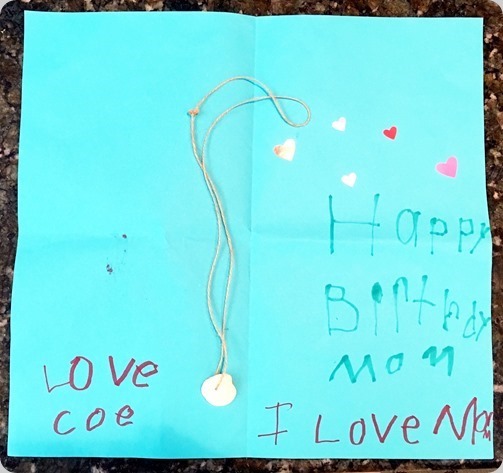 Happy
Birthday
Mom
LOVE
coe
I LOVE Mom